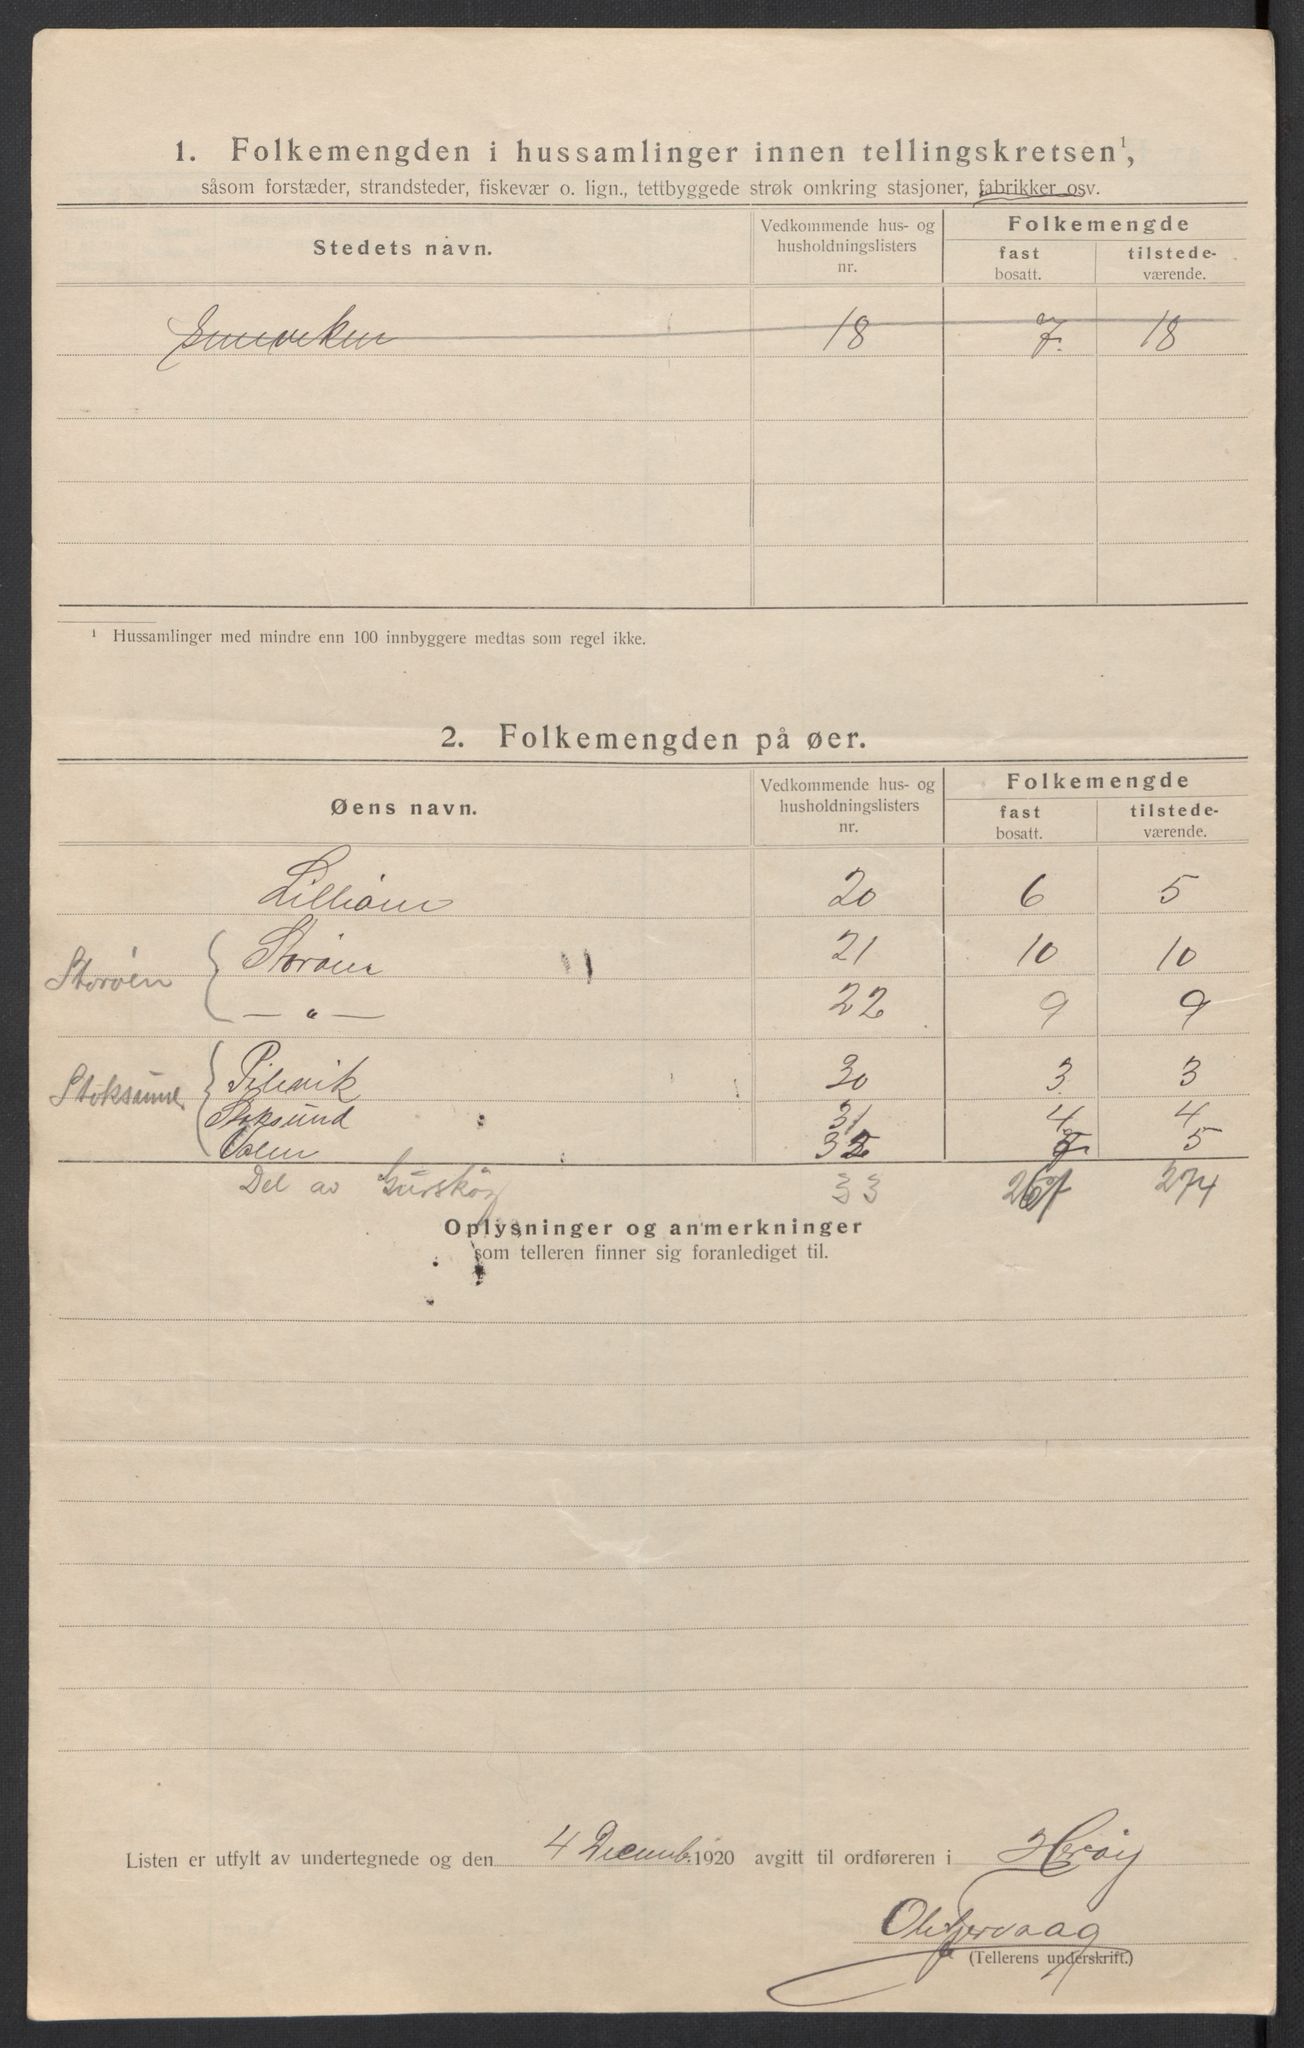 1. Folkemengden i hussamlinger innen tellingskretsen¹,
såsom forstæder, strandsteder, fiskevær o. lign., tettbyggede strøk omkring stasjoner, fabrikker osv.
Stedets navn.
Vedkommende hus- og husholdningslisters nr.
Folkemengde
fast bosatt.
tilstede-værende.
18 7. 18
¹ Hussamlinger med mindre enn 100 innbyggere medtas som regel ikke.
2. Folkemengden på øer.
Øens navn.
Vedkommende hus- og husholdningslisters nr.
Folkemengde
fast bosatt.
tilstede-værende.
Lilliøen 20 6 5
Storøen { Storøen 21 10 10
— " — 22 9 9
Stoksund { 30 3 3
Stoksund 31 4 4
32 7 5
Del av Gurskøy 33 267 274
Oplysninger og anmerkninger
som telleren finner sig foranlediget til.
Listen er utfylt av undertegnede og den 4 Decemb. 1920 avgitt til ordføreren i Herøy
(Tellerens underskrift.)